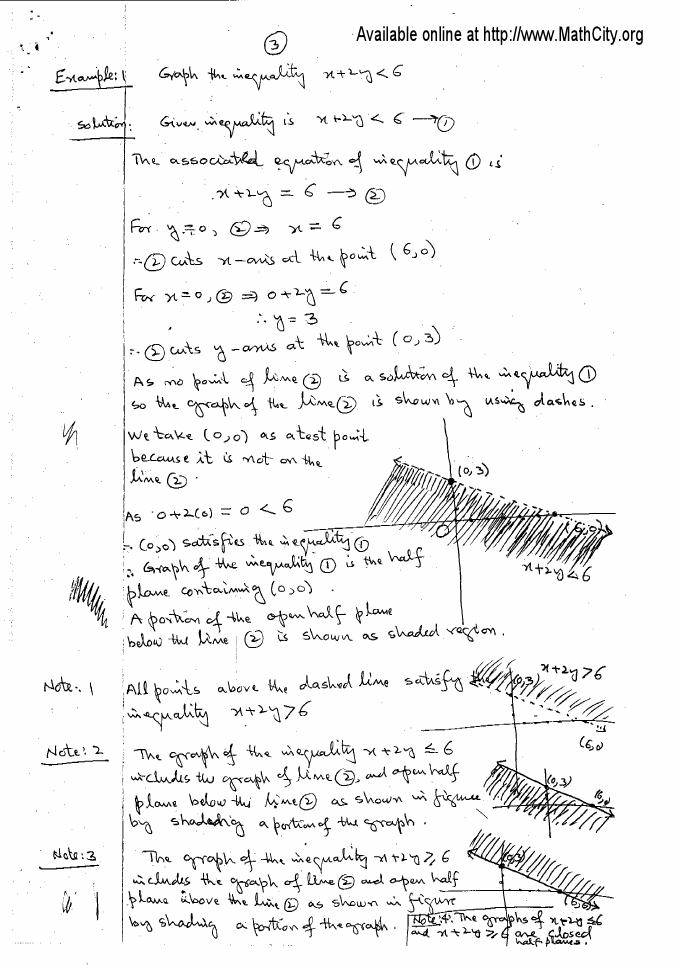 Available online at http://www.MathCity.org
③
Example: 1 Graph the inequality x+2y < 6
Solution: Given inequality is x+2y < 6 → ①
The associated equation of inequality ① is
x+2y = 6 → ②
For y=0, ② ⇒ x = 6
∴ ② cuts x-axis at the point (6,0)
For x=0, ② ⇒ 0+2y=6
∴ y = 3
∴ ② cuts y-axis at the point (0,3)
As no point of line ② is a solution of the inequality ①
so the graph of the line ② is shown by using dashes.
We take (0,0) as a test point
because it is not on the
line ②.
As 0+2(0) = 0 < 6
∴ (0,0) satisfies the inequality ①
∴ Graph of the inequality ① is the half
plane containing (0,0).
A portion of the open half plane
below the line ② is shown as shaded region.
(0,3)
O
(6,0)
x+2y<6
Note: 1 All points above the dashed line satisfy the
inequality x+2y>6
x+2y>6
(0,3)
(6,0)
Note: 2 The graph of the inequality x+2y ≤ 6
includes the graph of line ②, and open half
plane below the line ② as shown in figure
by shading a portion of the graph.
(0,3)
(6,0)
Note: 3 The graph of the inequality x+2y ≥ 6
includes the graph of line ② and open half
plane above the line ② as shown in figure
by shading a portion of the graph.
(0,3)
(6,0)
Note: 4. The graphs of x+2y ≤ 6
and x+2y ≥ 6 are closed
half planes.